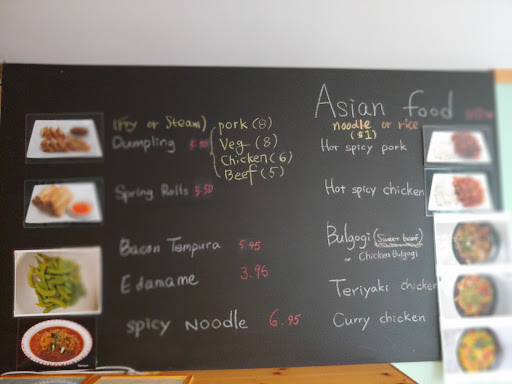 Asian food
(Fry or Steam)
Dumpling 5.50
pork (8)
Veg (8)
Chicken (6)
Beef (5)
Spring Rolls 5.50
Bacon Tempura 5.45
Edamame 3.95
spicy Noodle 6.95
noodle or rice
($1)
Hot spicy pork
Hot spicy chicken
Bulgogi (Sweet beef)
or Chicken Bulgogi
Teriyaki chicken
Curry chicken